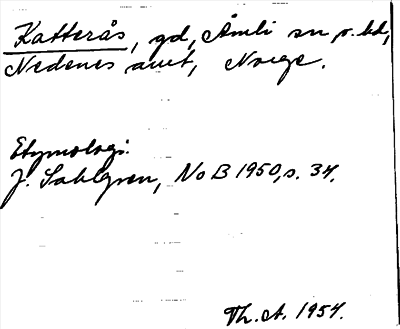 Katterås, gd, Åmli sn o. hd,
Nedenes amt, Norge.
Etymologi:
J. Sahlgren, NoB 1950, s. 34.
Th. A. 1954.